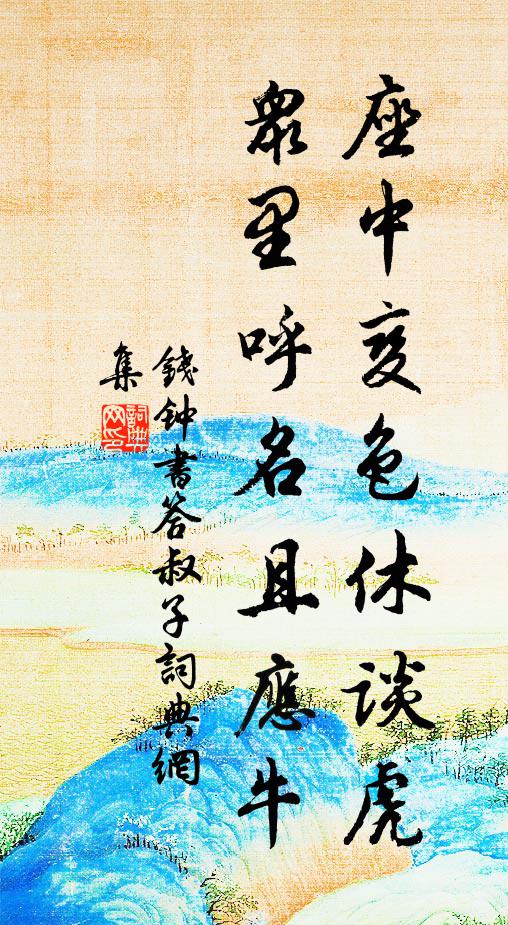 座中变色休谈虎
众里呼名且應牛
錢钟書答叔子詞典網
集
詞典
网印